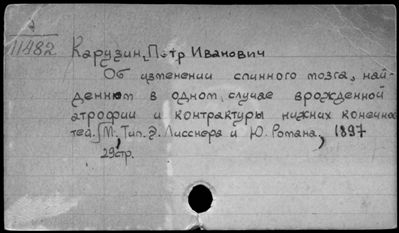 11482
Карузин, Петр Иванович
Об изменении спинного мозга, най-
денном в одном случае врожденной
атрофии и контрактуры нижних конечнос-
тей. [М., Тип. Э. Лисснера и Ю. Романа, 1897
29стр.